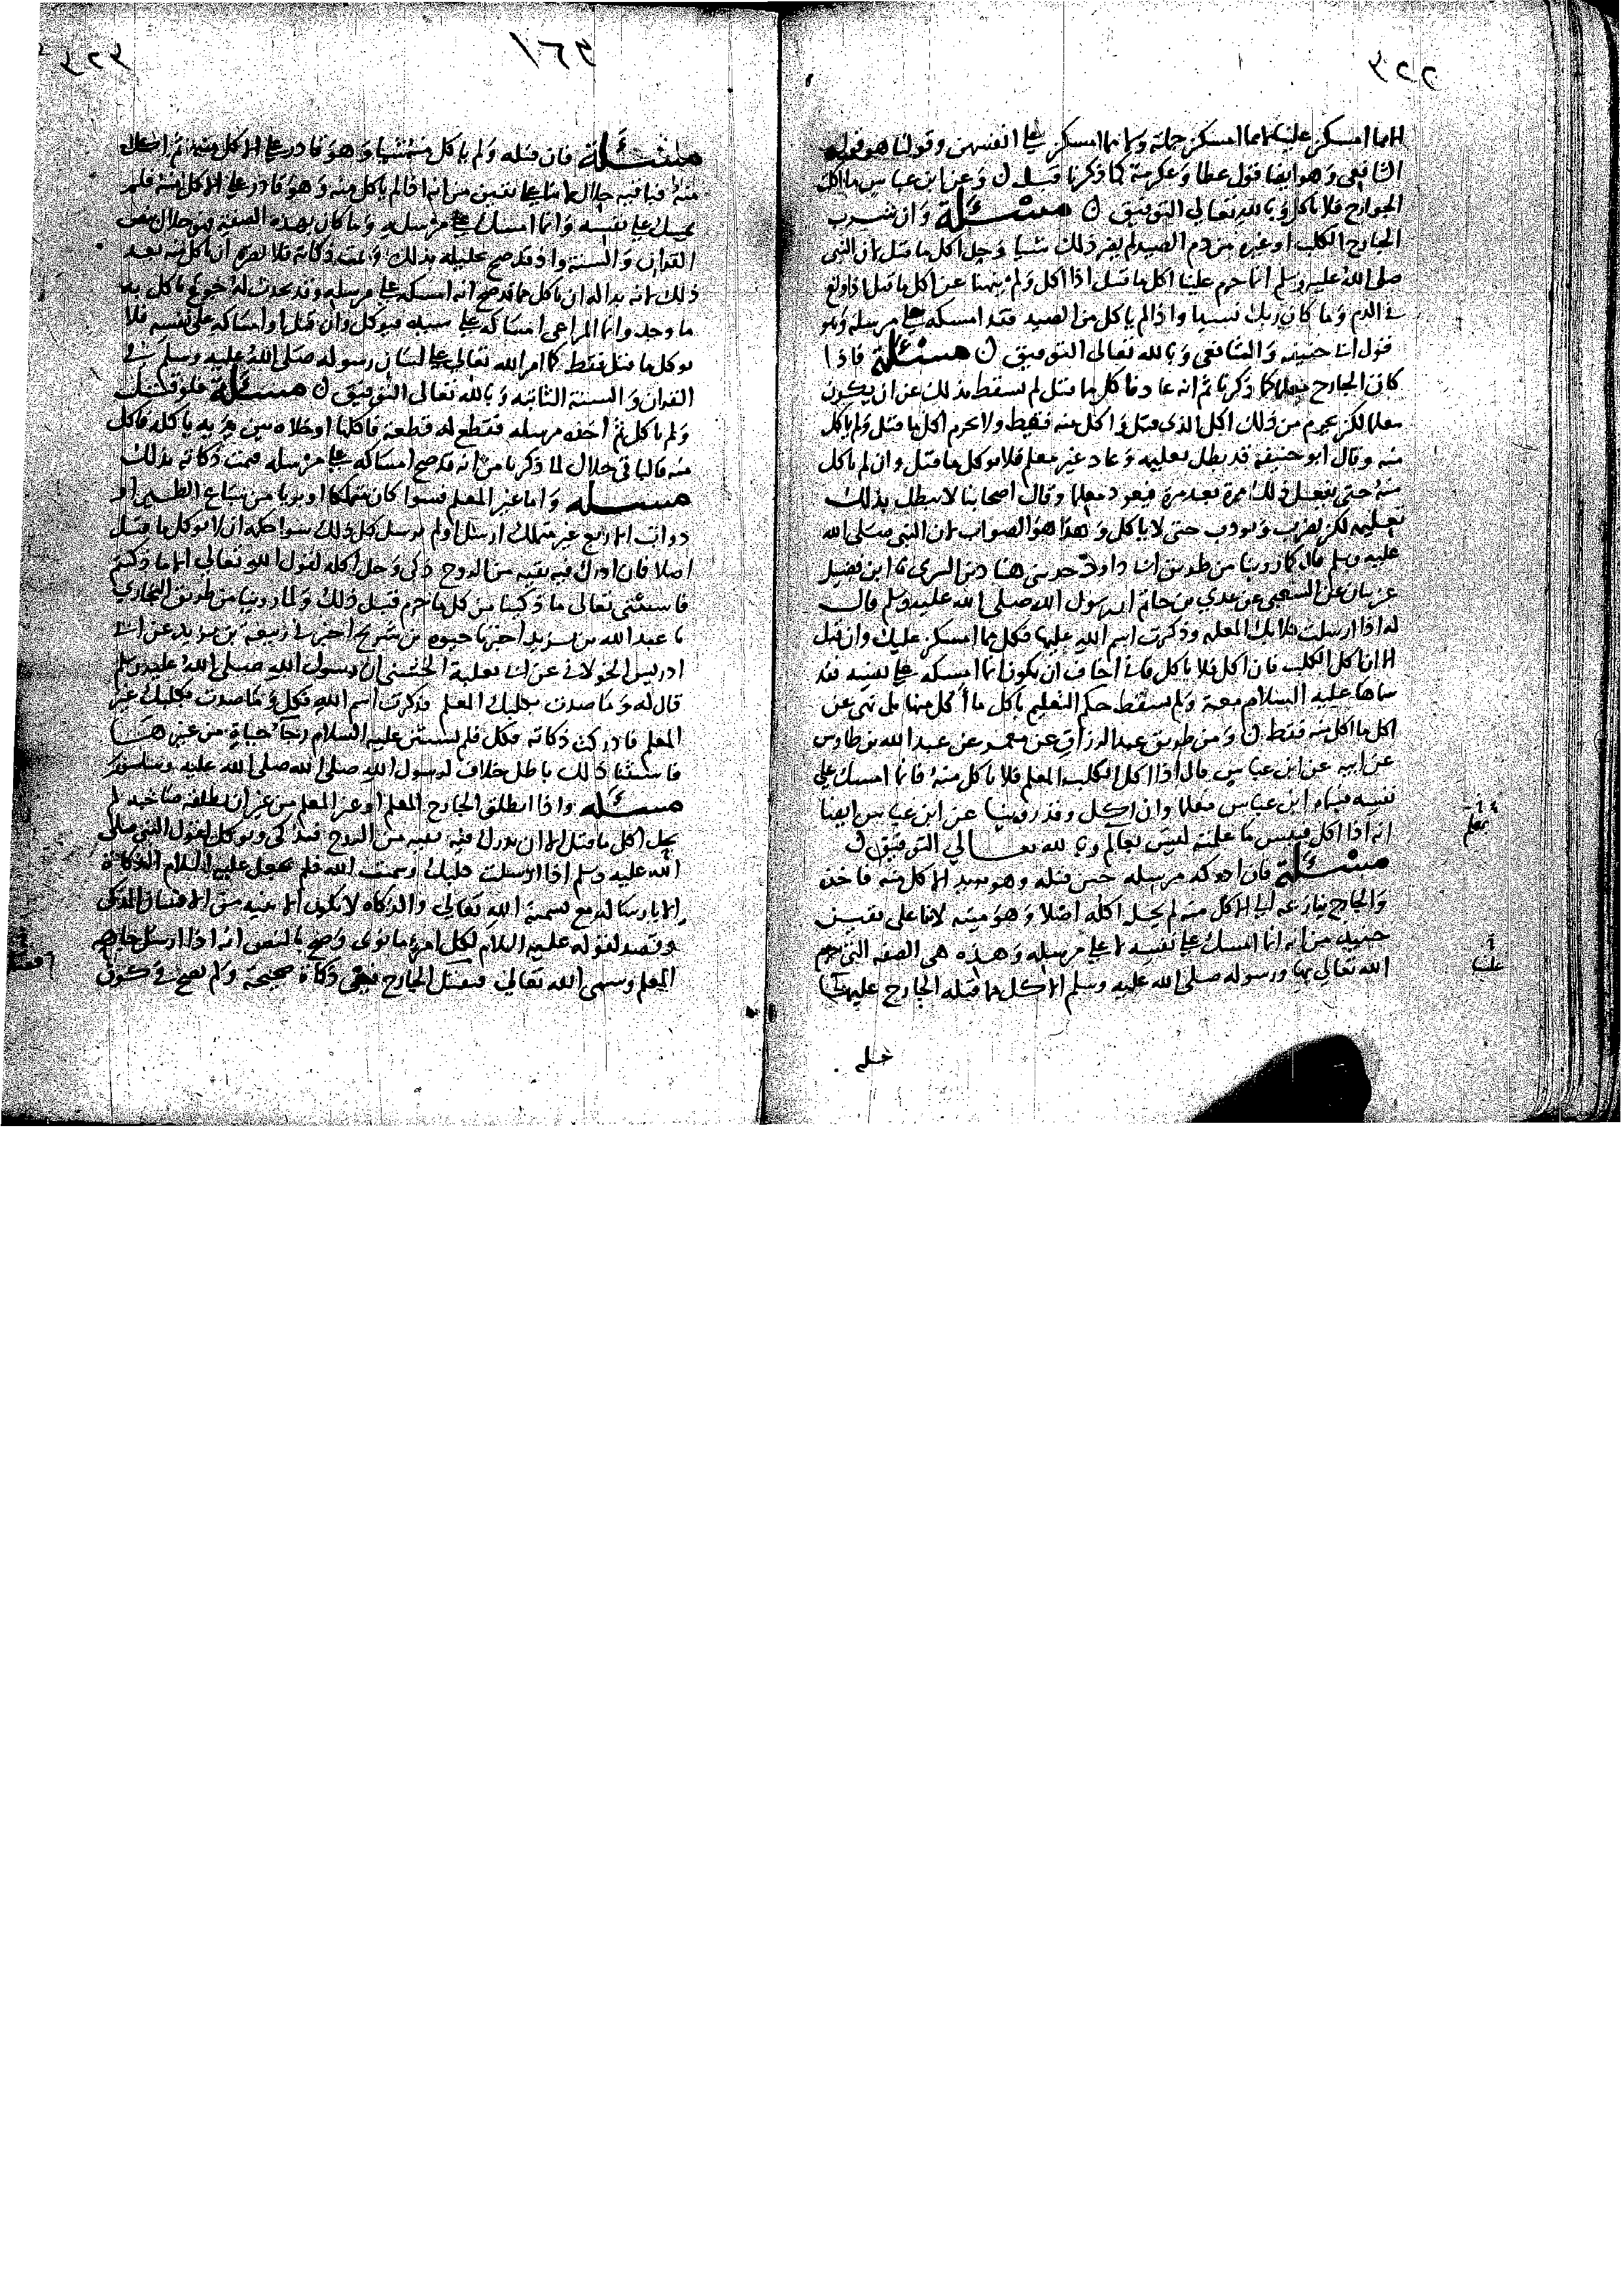 ٤٢٢
لا ما امسكن علينا
الشافعي وهو ايضا قول عطا وعكرمة كما ذكرنا قبل ن وعن ابن عباس ما اكلت
الجوارح فلا تاكل وبالله تعالى التوفيق ن مسئلة وان شرب
الجارح الكلب او غيره من دم الصيد لم يضر ذلك شيا وحل اكل ما قتل لان النبي
صلى الله عليه وسلم انما حرم علينا اكل ما قتل اذا اكل ولم ينهنا عن اكل ما قتل اذا ولغ
في الدم وما كان ربك نسيا واذا لم ياكل من الصيد فقد امسكه على مرسله وهو
قول ابي حنيفة والشافعي وبالله تعالى التوفيق ن مسئلة فاذا
كان الجارح معلما كما ذكرنا ثم انه عاد فاكل مما قتل لم يسقط بذلك عن ان يكون
معلما لكن يحرم من ذلك اكل الذي قتل واكل منه فقط ولا يحرم اكل ما قتل ولم ياكل
منه وقال ابو حنيفة قد بطل تعليمه وعاد غير معلم فلا يوكل ما قتل وان لم ياكل
منه حتى يفعل ذلك مرة بعد مرة فيعود معلما وقال اصحابنا لا يبطل بذلك
تعليمه لكن يضرب ويودب حتى لا ياكل وهذا هو الصواب لان النبي صلى الله
عليه وسلم قال كما روينا من طريق ابي داود حدثني هناد بن السري نا ابن فضيل
عن بيان عن الشعبي عن عدي بن حاتم ان رسول الله صلى الله عليه وسلم قال
له اذا ارسلت كلابك المعلمة وذكرت اسم الله عليها فكل مما امسكن عليك وان قتل
الا ان اكل الكلب فان اكل فلا تاكل فاني اخاف ان يكون انما امسكه على نفسه فقد
سماها عليه السلام معلمة ولم يسقط حكم التعليم باكل ما اكل منها بل نهى عن
اكل ما اكل منه فقط ن ومن طريق عبد الرزاق عن معمر عن عبد الله بن طاوس
عن ابيه عن ابن عباس قال اذا اكل الكلب المعلم فلا تاكل منه فانما امسك على
نفسه فسماه ابن عباس معلما وان اكل وقد روينا عن ابن عباس ايضا
انه اذا اكل فبئس ما علمته ليس بعالم وبالله تعالى التوفيق ن
مسئلة فان ادركه مرسله حين قتله وهو يريد الاكل منه فاخذه
والجارح ينازعه الى الاكل منه لم يحل اكله اصلا وهو ميتة لاننا على يقين
حينئذ من انه انما امسك على نفسه لا على مرسله وهذه هي الصفة التي حرم
الله تعالى بها ورسوله صلى الله عليه وسلم الاكل مما قتله الجارح عليها
٤٢٣
مسئلة فان قتله ولم ياكل منه شيا وهو قادر على الاكل منه ثم اكل
منه فباقيه حلال لاننا على يقين من انه اذا لم ياكل منه وهو قادر على الاكل منه فلم
يمسك على نفسه وانما امسك على مرسله وما كان بهذه الصفة فهو حلال بنص
القران والسنة واذ قد صح تحليله بذلك وتمت ذكاته فلا يضره ان ياكل منه بعد
ذلك لانه بدا له ان ياكل مما قد صح انه امسكه على مرسله وقد يحدث له جوع فياكل به
ما وجد وانما المراعى امساكه على مرسله فيوكل وان قتل او امساكه على نفسه فلا
يوكل ما قتل فقط كما امر الله تعالى على لسان رسوله صلى الله عليه وسلم في
القران والسنة الثابتة وبالله تعالى التوفيق ن مسئلة فلو قتل
ولم ياكل ثم اخذه مرسله فقطع له قطعة فاكلها او خلاه بين يديه ياكله فاكل
منه فالباقي حلال لما ذكرنا من انه قد صح امساكه على مرسله فتمت ذكاته بذلك
مسئله واما غير المعلم فسوا كان متملكا او بريا من سباع الطير او
دواب الاربع غير متملك ارسل او لم يرسل كل ذلك سوا حكمه ان لا يوكل ما قتل
اصلا فان ادرك فيه بقية من الروح ذكي وحل اكله لقول الله تعالى الا ما ذكيتم
فاستثنى تعالى ما ذكينا من كل ما حرم قبل ذلك ولما روينا من طريق البخاري
نا عبد الله بن يزيد اخبرنا حيوة بن شريح اخبرني ربيعة بن يزيد عن ابي
ادريس الخولاني عن ابي ثعلبة الخشني ان رسول الله صلى الله عليه وسلم
قال له وما صدت بكلبك المعلم فذكرت اسم الله فكل وما صدت بكلبك غير
المعلم فادركت ذكاته فكل فلم يستثن عليه السلام رجا حياة من غير هـا
فاستثنا ذلك باطل خلاف لرسول الله صلى الله عليه وسلم
مسئله واذا انطلق الجارح المعلم او غير المعلم من غير ان يطلقه صاحبه لم
يحل اكل ما قتل الا ان يدرك فيه بقية من الروح فيذكى ويوكل لقول النبي صلى
الله عليه وسلم اذا ارسلت كلبك وسميت الله فلم يجعل عليه السلام الذكاة
الا بارساله مع تسمية الله تعالى والذكاة لا تكون الا بنية من الانسان المذكي
وقصد لقوله عليه السلام لكل امرئ ما نوى وصح بالنص انه اذا ارسل جارحه
المعلم وسمى الله تعالى فقتل الجارح فهي ذكاة صحيحة ولم يصح في كون